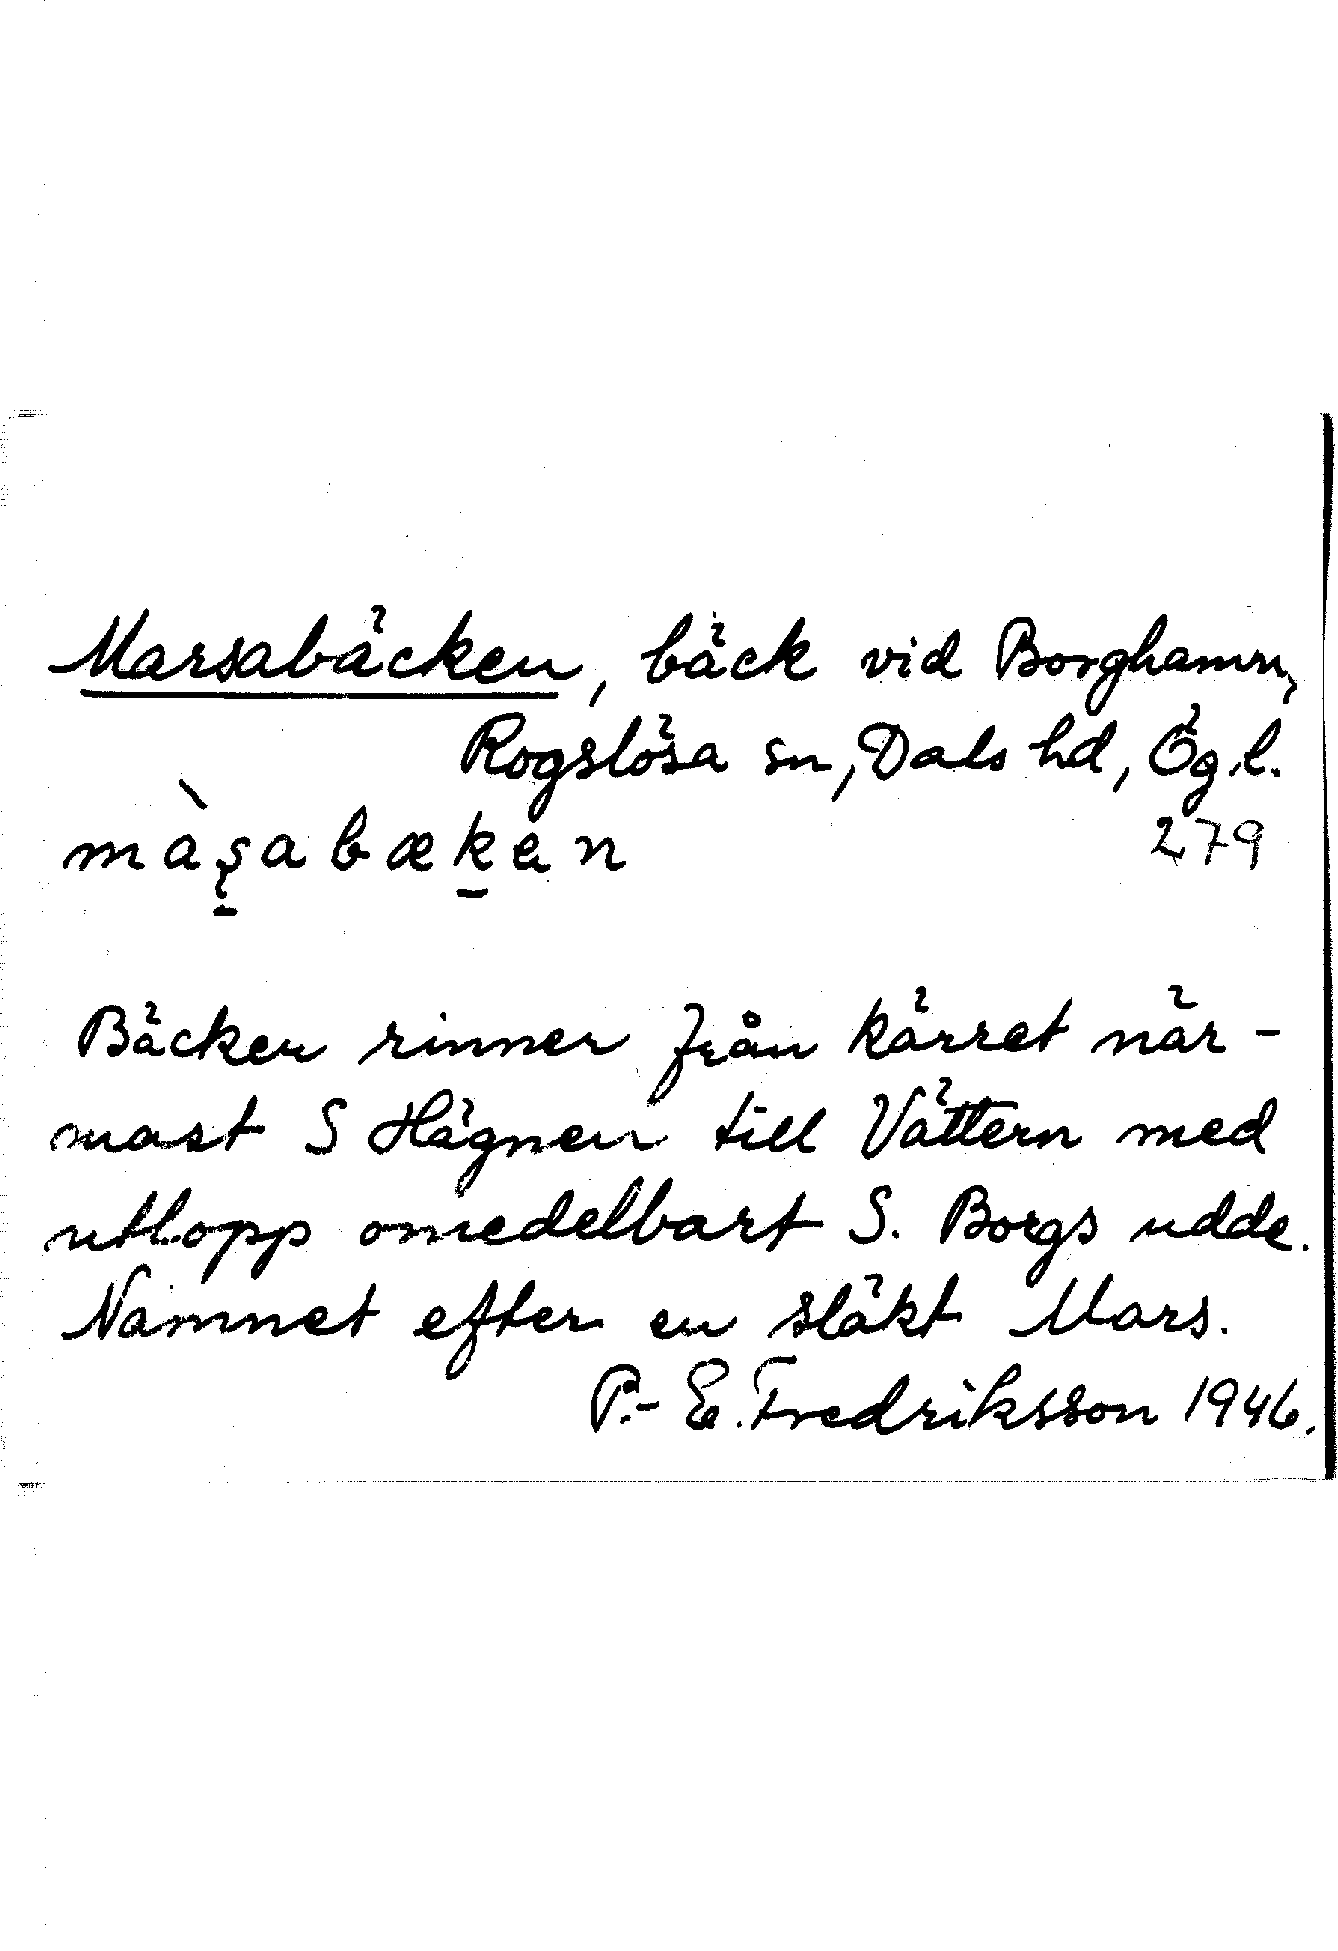 Marsabäcken, bäck vid Borghamn,
Rogslösa sn, Dals hd, Ög.l.
màʂabæḵen
279
Bäcken rinner från kärret när-
mast S Hägnen till Vättern med
utlopp omedelbart S. Borgs udde.
Namnet efter en släkt Mars.
P.-E. Fredriksson 1946.